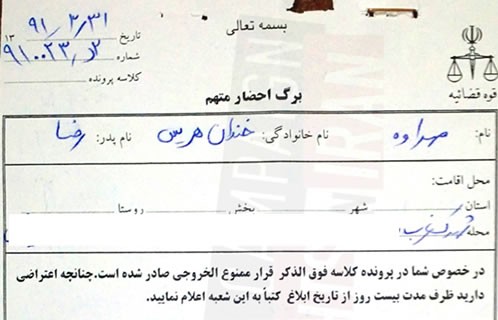 بسمه تعالی
تاریخ ۹۱/۲/۳۱ ۱۳
شماره ۹۱۰۰۲۳
کلاسه پرونده
قوه قضائیه
برگ احضار متهم
نام: مهراوه نام خانوادگی: خندان هریس نام پدر: رضا
محل اقامت:
استان شهر بخش روستا
محله شهرک غرب
در خصوص شما در پرونده کلاسه فوق الذکر قرار ممنوع الخروجی صادر شده است.چنانچه اعتراضی
دارید ظرف مدت بیست روز از تاریخ ابلاغ کتباً به این شعبه اعلام نمایید.